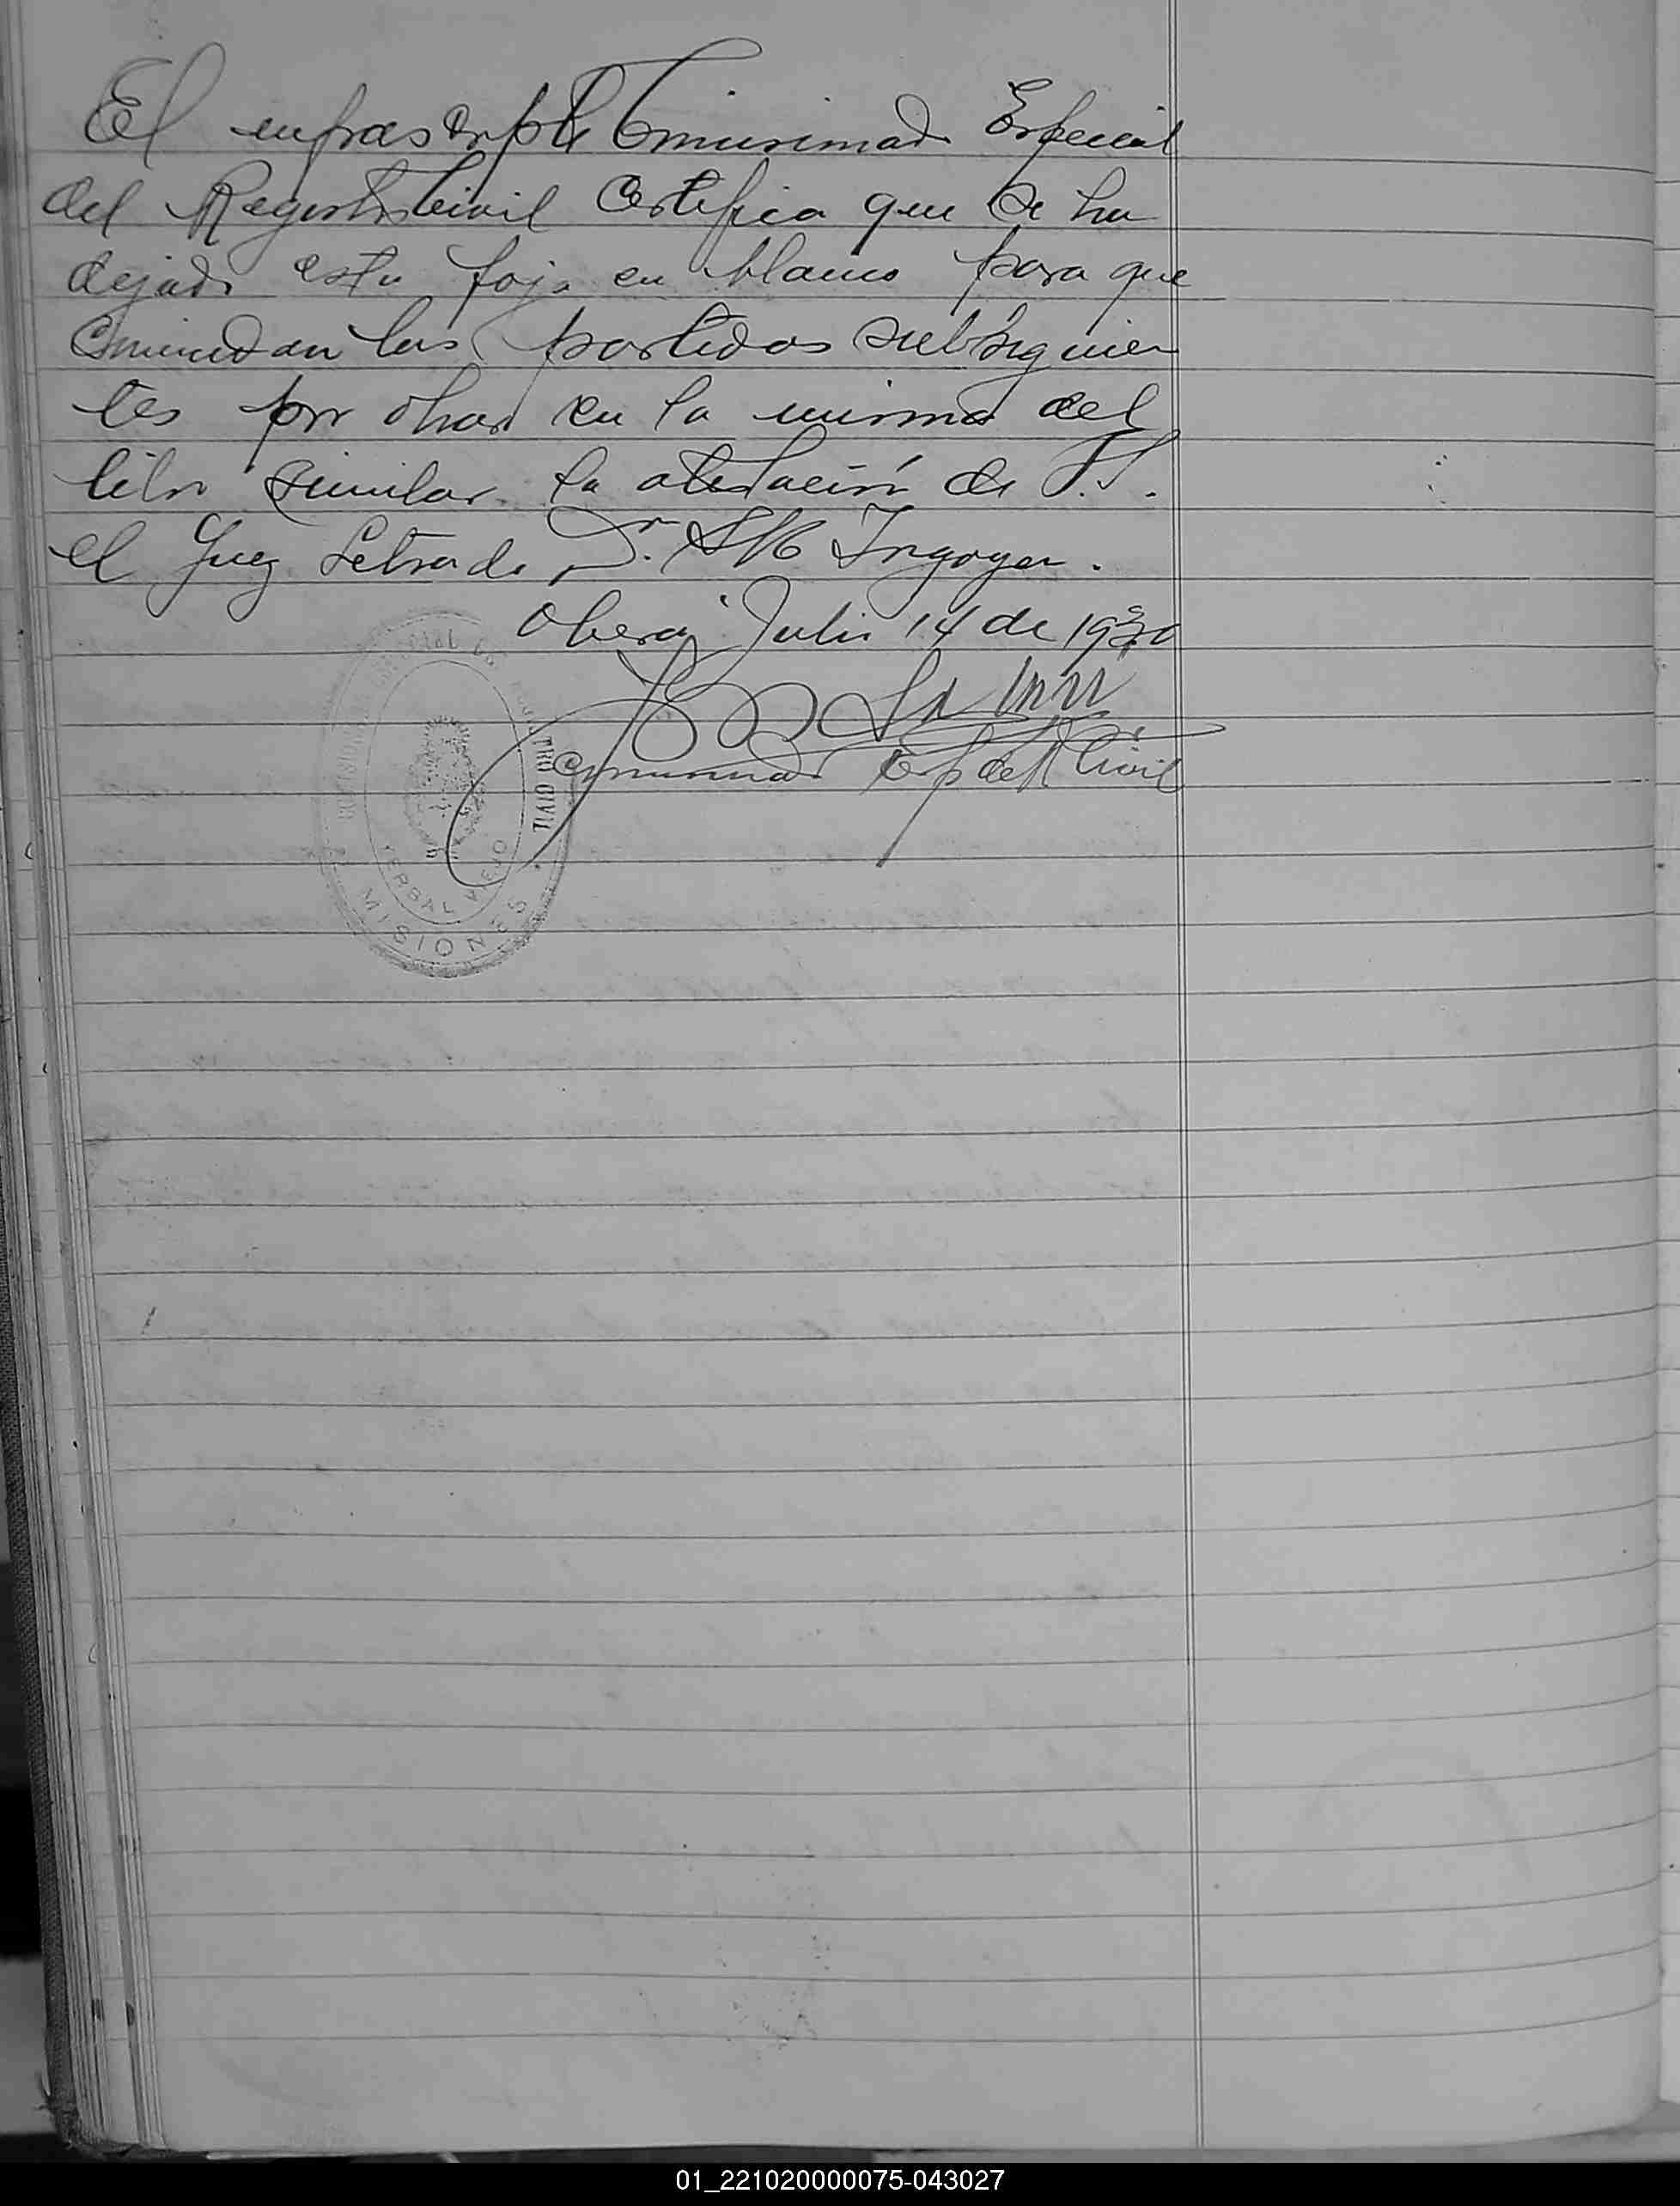 El infrascripto Comisionado Especial
del Registro Civil Certifica que se ha
dejado esta foja en blanco para que
Coincidan las partidas subsiguien
tes por obrar en la misma del
libro similar la atestación de S.S.
el Juez Letrado Dr. Irigoyen.
Oberá Julio 14 de 1930
Comisionado Esp del R Civil
REGISTRO CIVIL
YERBAL VIEJO
MISIONES
01_221020000075-043027